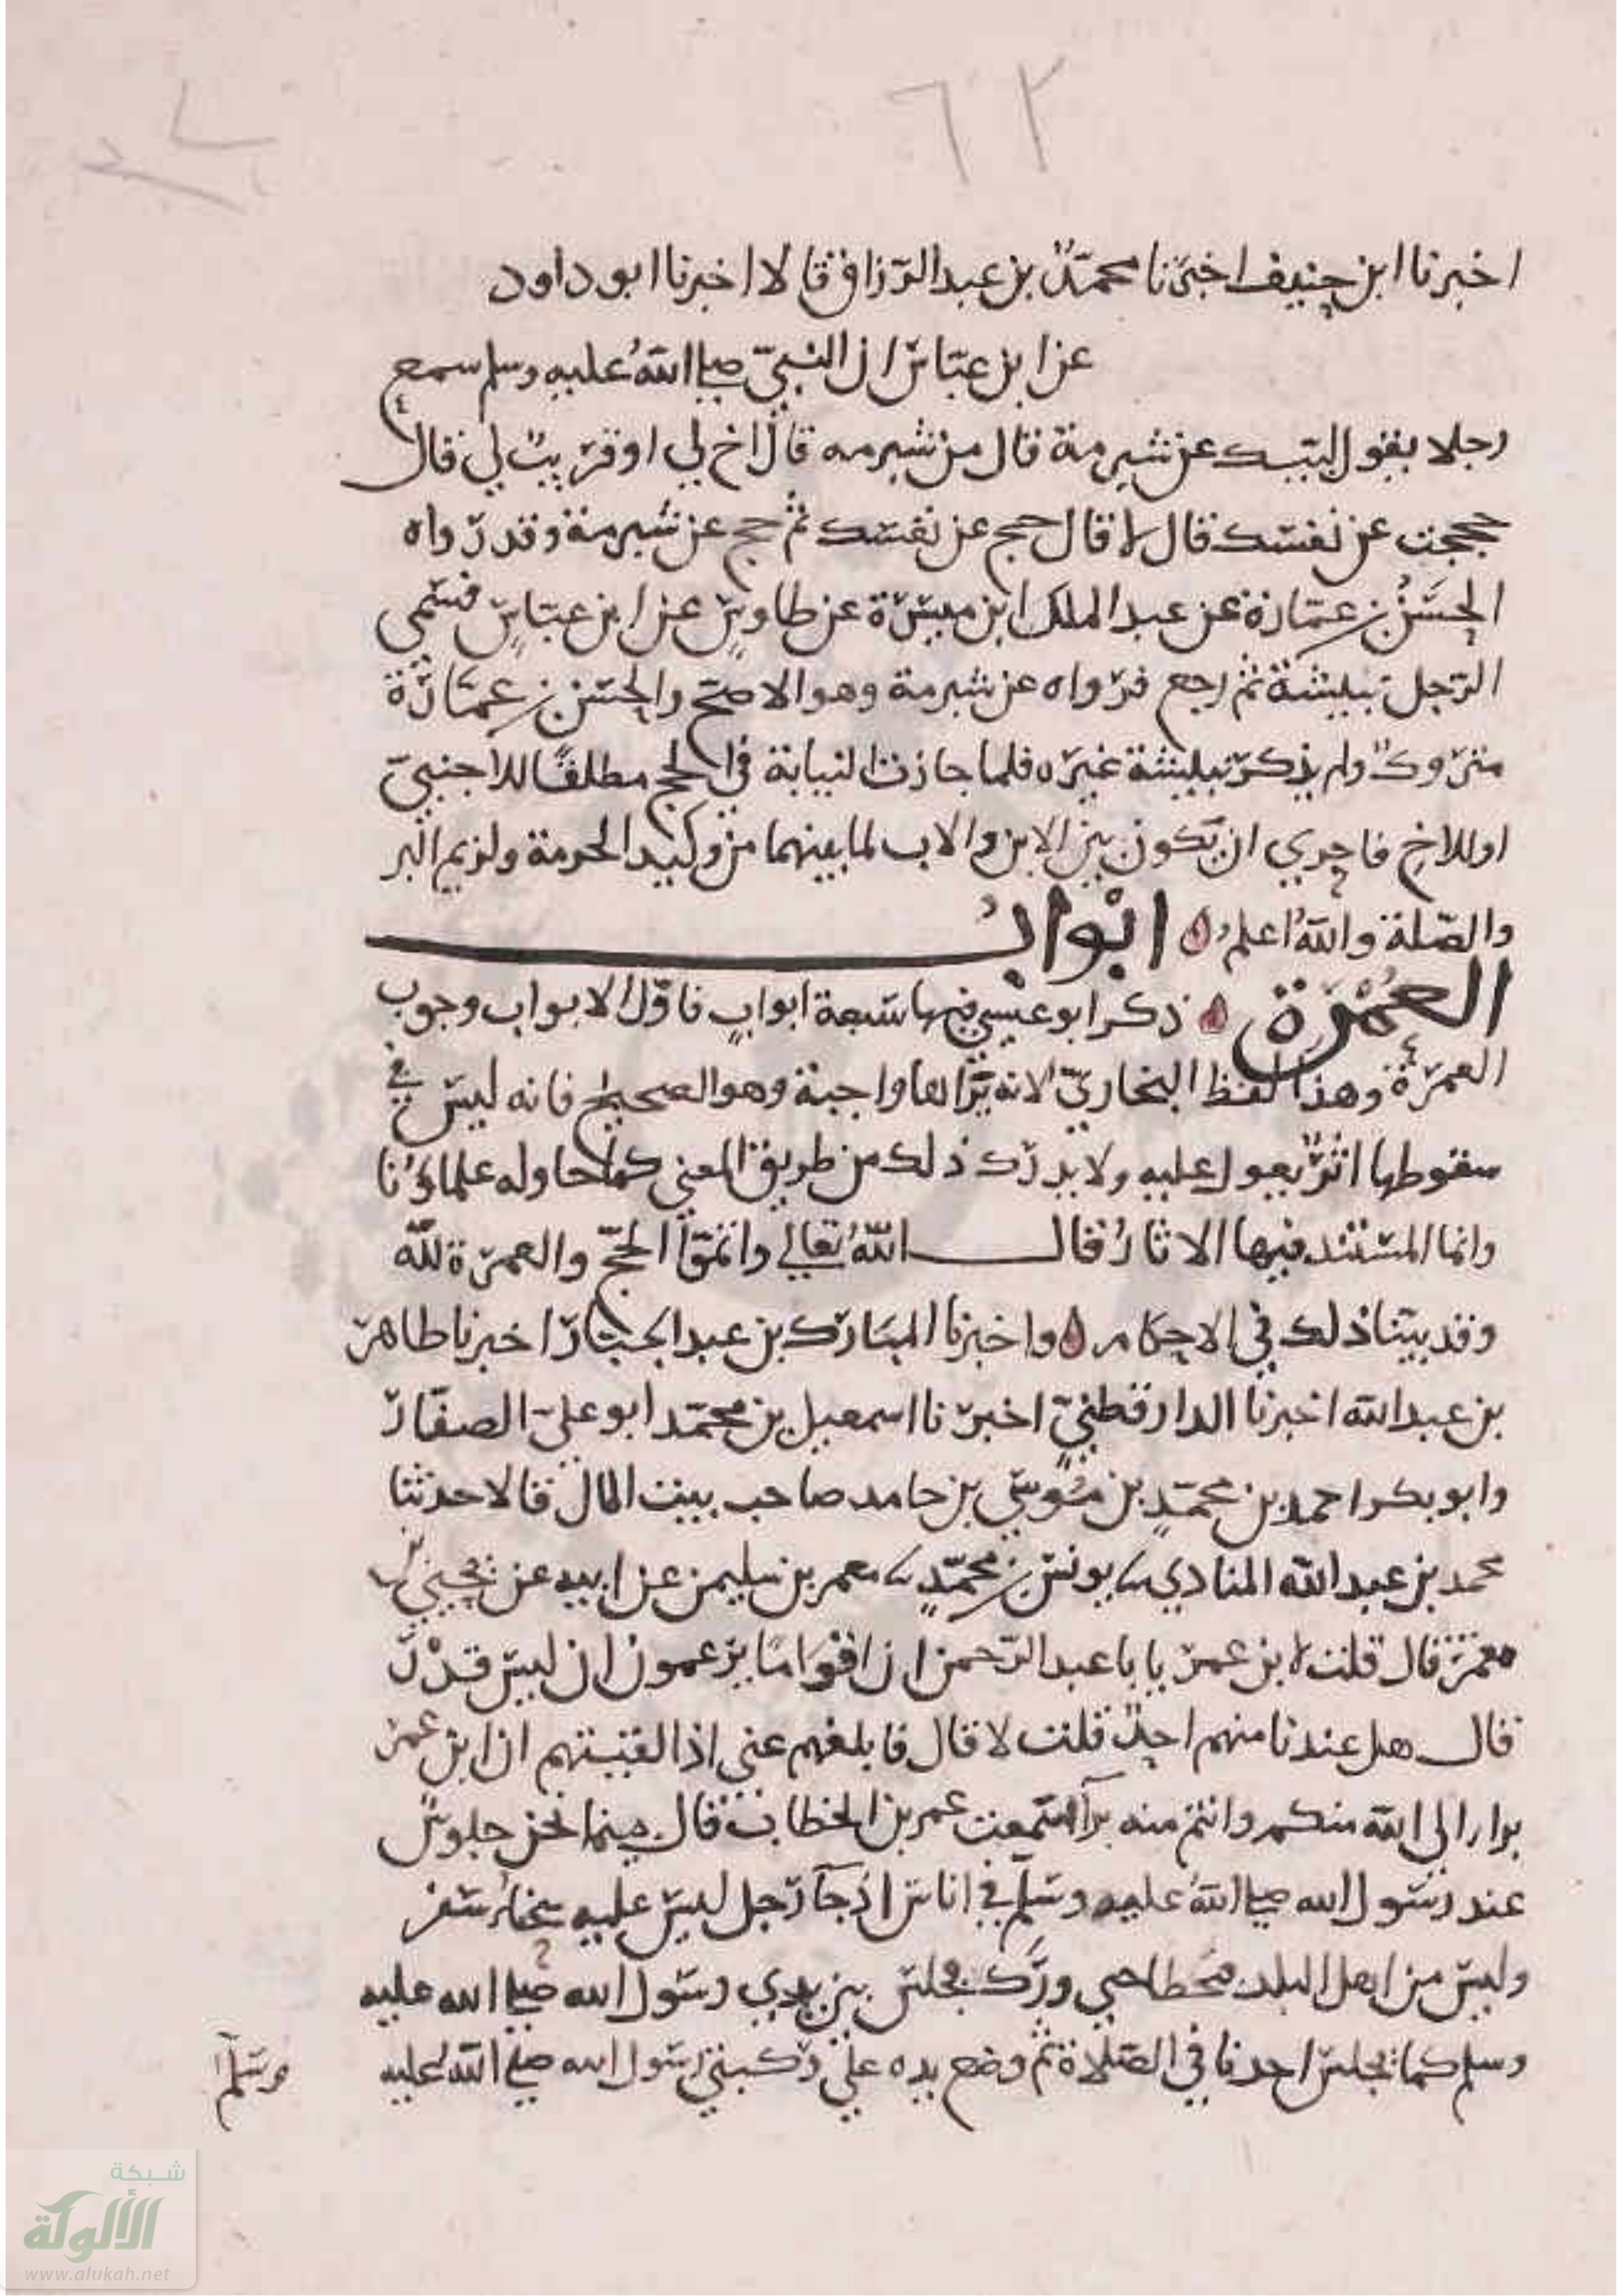 ٦٢
اخبرنا ابن حنيف اخبرنا محمد بن عبد الرزاق قالا اخبرنا ابو داود
عن ابن عباس ان النبي صلى الله عليه وسلم سمع
رجلا يقول لبيك عن شبرمة قال من شبرمه قال اخ لي او قريب لي قال
حججت عن نفسك قال لا قال حج عن نفسك ثم حج عن شبرمة وقد رواه
الحسن بن عمارة عن عبد الملك ابن ميسرة عن طاوس عن ابن عباس فسمى
الرجل نبيشة ثم رجع فرواه عن شبرمة وهو الاصح والحسن بن عمارة
متروك ولم يذكر نبيشة غيره فلما جازت النيابة في الحج مطلقا للاجنبي
او للاخ فاحري ان يكون بين الابن والاب لما بينهما من وكيد الحرمة ولزيم البر
والصلة والله اعلم ابواب
العمرة ذكر ابو عيسي فيها سبعة ابواب فاول الابواب وجوب
العمرة وهذا لفظ البخاري لانه يراها واجبة وهو الصحيح فانه ليس في
سقوطها اثر يعول عليه ولا يدرك ذلك من طريق المعني كما حاوله علماؤنا
وانما المستند فيها الاثار فقال الله تعالي واتموا الحج والعمرة لله
وقد بينا ذلك في الاحكام واخبرنا المبارك بن عبد الجبار اخبرنا طاهر
بن عبد الله اخبرنا الدارقطني اخبرنا اسمعيل بن محمد ابو علي الصفار
وابو بكر احمد بن محمد بن موسي بن حامد صاحب بيت المال قالا حدثنا
محمد بن عبيد الله المنادي نا يونس بن محمد نا معمر بن سليمن عن ابيه عن يحيي بن
معمر قال قلت لابن عمر يا با عبد الرحمن ان اقواما يزعمون ان ليس قدر
قال هل عندنا منهم احد قلت لا قال فابلغهم عني اذا لقيتهم ان ابن عمر
برا الى الله منكم وانتم منه برآ سمعت عمر بن الخطاب قال بينما نحن جلوس
عند رسول الله صلى الله عليه وسلم في اناس اذ جآ رجل ليس عليه سحناء سفر
وليس من اهل البلد يتخطا حتي ورك فجلس بين يدي رسول الله صلى الله عليه
وسلم كما يجلس احدنا في الصلاة ثم وضع يده علي ركبتي رسول الله صلى الله عليه
وسلم
شبكة
الألوكة
www.alukah.net